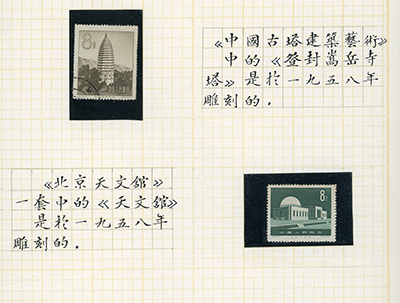 8分
《中國古塔建築藝術》
中的《登封嵩岳寺
塔》是於一九五八年
雕刻的.
《北京天文舘》
一套中的《天文舘》
是於一九五八年
雕刻的.
8分
中国人民邮政